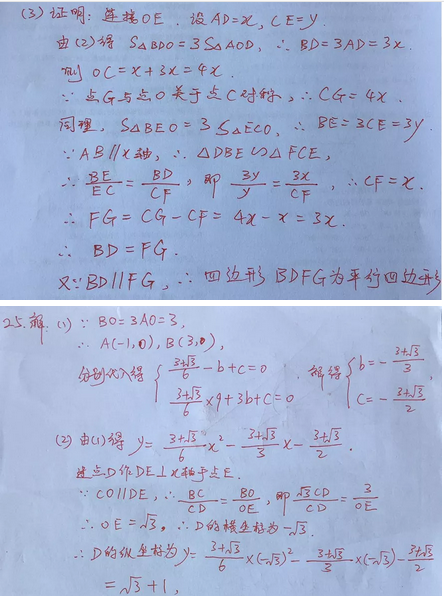 (3) 证明: 连接OE. 设AD=x, CE=y.
由(2)得 S△BDO=3S△AOD, ∴BD=3AD=3x.
则 OC=x+3x=4x.
∵点G与点O关于点C对称, ∴CG=4x.
同理, S△BEO=3S△ECO, ∴BE=3CE=3y.
∵AB∥x轴, ∴△DBE∽△FCE,
∴BE/EC=BD/CF, 即 3y/y=3x/CF, ∴CF=x.
∴FG=CG-CF=4x-x=3x.
∴BD=FG.
又∵BD∥FG, ∴四边形BDFG为平行四边形
25.解: (1) ∵BO=3AO=3,
∴A(-1,0), B(3,0),
分别代入得 { (3+√3)/6-b+c=0 解得 { b=-(3+√3)/3
(3+√3)/6×9+3b+c=0 c=-(3+√3)/2
(2) 由(1)得 y=(3+√3)/6x²-(3+√3)/3x-(3+√3)/2.
过点D作DE⊥x轴于点E.
∵CO∥DE, ∴BC/CD=BO/OE, 即 √3CD/CD=3/OE
∴OE=√3, ∴D的横坐标为-√3.
∴D的纵坐标为 y=(3+√3)/6×(-√3)²-(3+√3)/3×(-√3)-(3+√3)/2
=√3+1,